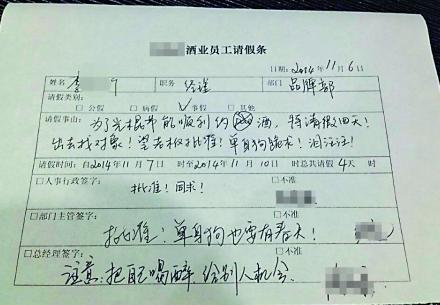 酒业员工请假条
日期:2014年11月6日
姓名 李 职务 经理 部门 品牌部
请假类别:
□公假 □病假 ✓事假 □其他
请假事由: 为了光棍节能顺利约 酒,特请假四天!
出去找对象!望老板批准!单身狗跪求!泪汪汪!
请假时间:自2014年11月7日 时至2014年11月10日 时总共请假4天 时
□人事行政签字: □不准
批准!同求!
□部门主管签字: □不准
批准!单身狗也要有春天!
□总经理签字: □不准
注意:把自己喝醉 给别人机会